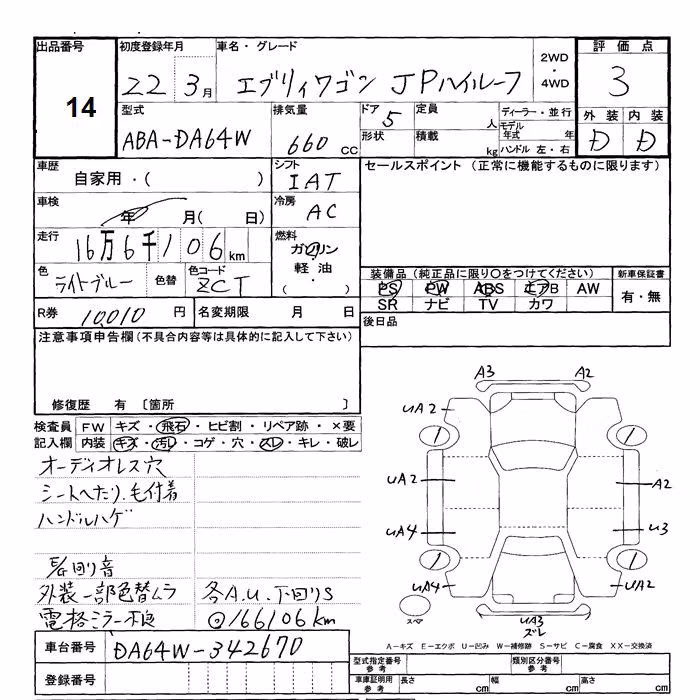 出品番号 初度登録年月 車名・グレード 2WD・4WD 評価点
14 22 3月 エブリィワゴン JPハイルーフ 3
型式 排気量 ドア 定員 ディーラー・並行 外装 内装
ABA-DA64W 660cc 5 人 モデル年式 年 D D
形状 積載 kg ハンドル 左・右
車歴 シフト セールスポイント (正常に機能するものに限ります)
自家用・( ) IAT
車検 冷房
年 月( 日) AC
走行 燃料
16万6千106km ガソリン
軽油
・( )
色 色替 色コード
ライトブルー ZCT
装備品 (純正品に限り○をつけてください) 新車保証書
PS PW ABS エアB AW 有・無
SR ナビ TV カワ
R券 10,010円 名変期限 月 日 後日品
注意事項申告欄 (不具合内容等は具体的に記入して下さい)
修復歴 有 〔箇所 〕
検査員 FW キズ・飛石・ヒビ割・リペア跡・×要
記入欄 内装 キズ・汚レ・コゲ・穴・スレ・キレ・破レ
オーディオレス穴
シートへたり、毛付着
ハンドルハゲ
回り音
外装一部色替ムラ 各A.U、下回りS
電格ミラー不良 ◎166106km
車台番号 DA64W-342670
登録番号
A3 A2
UA2
1 1
UA2 A2
UA4 U3
1 1
UA4 UA2
スペア UA3
ズレ
A-キズ E-エクボ U-凹み W-補修跡 S-サビ C-腐食 XX-交換済
型式指定番号 参考 類別区分番号 参考
車庫証明用 参考 長さ cm 幅 cm 高さ cm